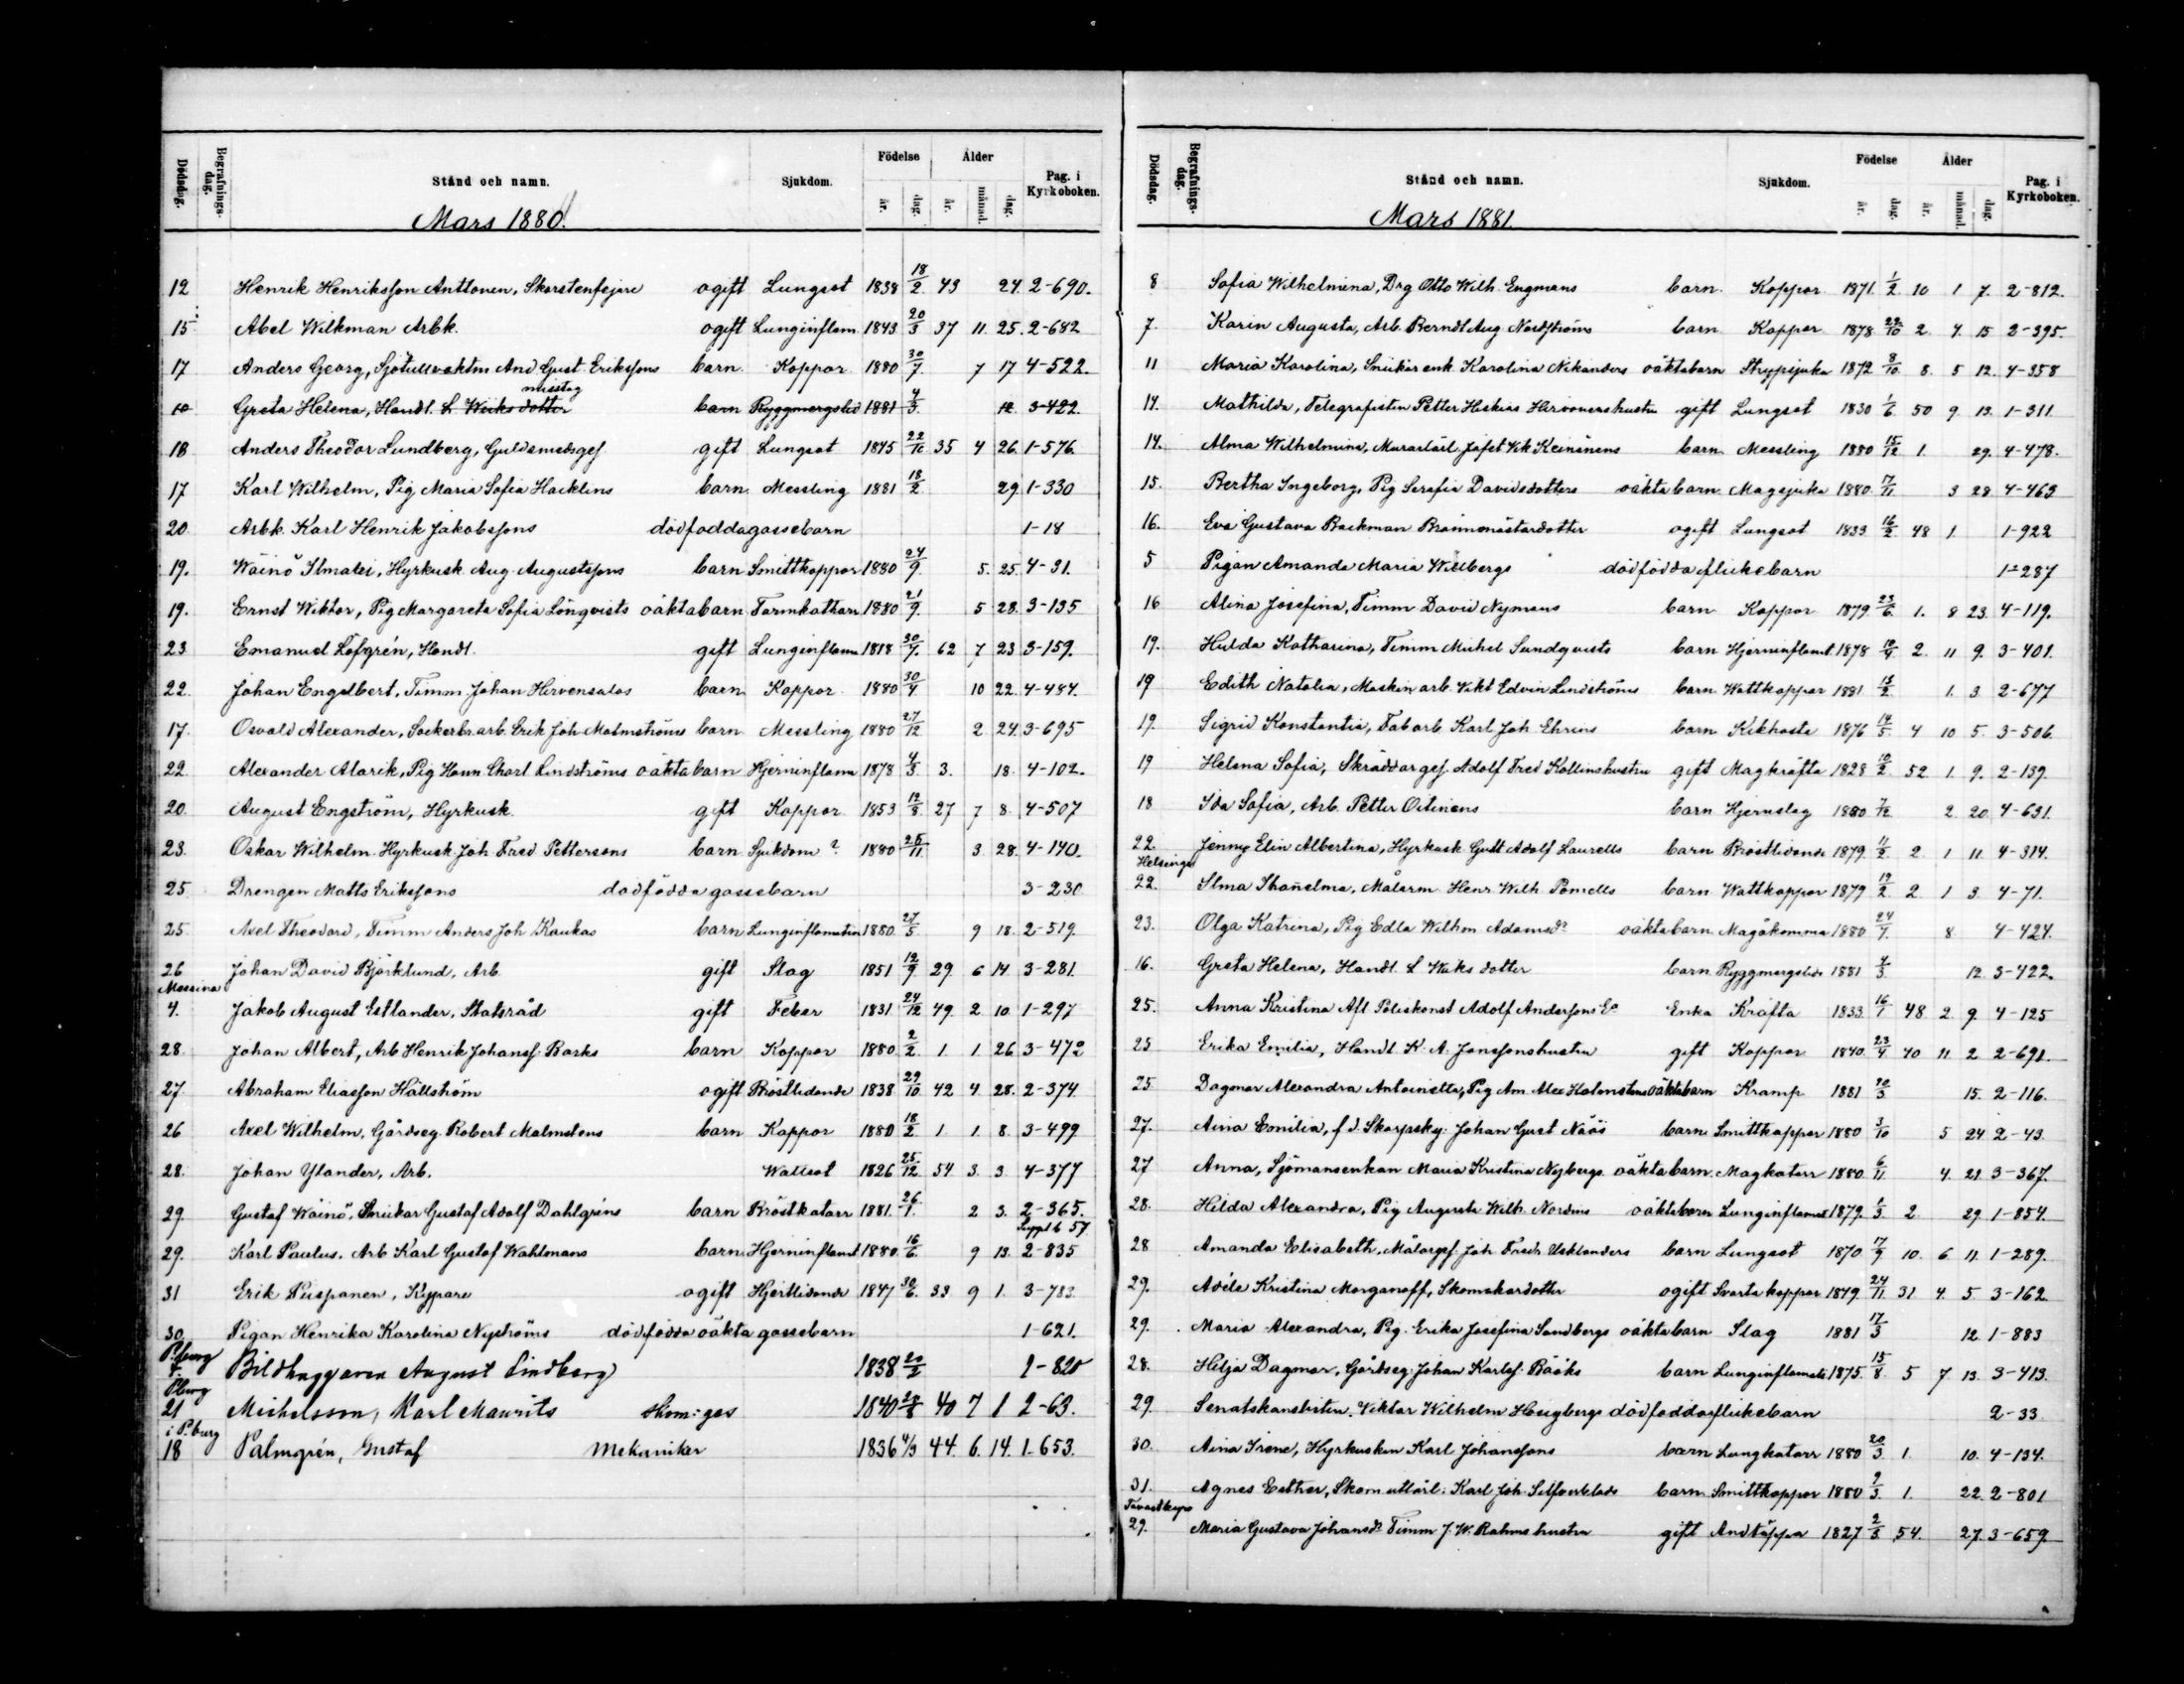 Dödsdag. Begrafningsdag. Stånd och namn. Sjukdom. Födelse år. dag. Ålder år. månad. dag. Pag. i Kyrkoboken.
Mars 1880.
12 Henrik Henriksson Anttonen, Skorstenfejare ogift Lungsot 1838 18/2 43 24. 2-690.
15 Abel Wilkman Arbk. ogift Lunginflam. 1843 20/3 37 11. 25. 2-682
17 Anders Georg, Sjötullvaktm And. Gust. Erikssons barn. Koppor 1880 30/7. 7 17 4-522
misstag
10 Greta Helena, Handl. L. Weiksdotter barn Ryggmergslid 1881 4/3. 12. 3-422.
18 Anders Theodor Lundberg, Guldsmedsges gift Lungsot 1845 22/10 35 4 26. 1-576.
17 Karl Wilhelm, Pig Maria Sofia Hacklins barn. Messling 1881 18/2. 29. 1-330
20. Arbk. Karl Henrik Jakobssons dödfödda gossebarn 1-18
19. Wäinö Ilmatei, Hyrkusk Aug. Augustssons barn Smittkoppor 1880 24/9. 5. 25. 4-31.
19. Ernst Wiktor, Pig Margareta Sofia Lönqvists oäkta barn Tarmkatharr 1880 21/9. 5 28. 3-135
23 Emanuel Löfgrén, Handl. gift Lunginflam 1818 30/7. 62 7 23 3-159.
22. Johan Engelbert, Timm Johan Hirvensalos barn Koppor 1880 30/4 10 22. 4-484.
17. Osvald Alexander, Sockerbr.arb. Erik Joh Malmströms barn Messling 1880 27/12 2 24. 3-695
22. Alexander Alarik, Pig Hann Charl Lindströms oäkta barn Hjerninflam 1878 4/3 3. 18. 4-102.
20. August Engström, Hyrkusk. gift Koppor 1853 12/8. 27 7 8. 4-507
23. Oskar Wilhelm. Hyrkusk Joh Fred Pettersons barn Sjukdom ? 1880 25/11 3 28. 4-140.
25. Drengen Matts Erikssons dödfödda gossebarn 3-230
25. Axel Theodord, Timm Anders Joh Kaukas barn Lunginflamation 1880. 27/5 9 18. 2-519.
26 Johan David Björklund, Arb. gift Slag 1851 12/9 29. 6 14 3-281.
Messina
4. Jakob August Estlander, Statsråd gift Feber 1831 24/12 49. 2. 10. 1-297
28. Johan Albert, Arb Henrik Johanss. Barks barn Koppor 1880 2/2. 1. 1. 26. 3-472
27. Abraham Eliasson Hällström ogift Bröstlidande 1838 29/10. 42 4. 28. 2-374.
26 Axel Wilhelm, Gårdseg. Robert Malmstens barn Koppor 1880 18/2. 1. 1. 8. 3-499
28. Johan Ylander, Arb. Wattsot 1826 25/12 54 3. 3. 4-377
29. Gustaf Wäinö, Snickar Gustaf Adolf Dahlgréns barn Bröstkatarr 1881. 26/1. 2 3. 2-365.
Suppl b 57
29. Karl Paulus. Arb Karl Gustaf Wahlmans barn Hjerninflamt 1880. 16/6. 9 13. 2-835
31 Erik Puspanen, Kypare ogift Hjertlidande 1847 30/6. 33 9 1. 3-783.
30. Pigan Henrika Karolina Nyströms dödfödda oäkta gossebarn 1-621.
P.burg
7. Bildhuggaren August Lindberg 1838 20/2 1-820
P.burg
21 Michelsson, Karl Maurits skom: ges 1840 20/8 40 7 1 2-63.
i P.burg
18 Palmgrén, Gustaf Mekaniker 1836 4/9 44. 6. 14. 1-653.
Dödsdag. Begrafningsdag. Stånd och namn. Sjukdom. Födelse år. dag. Ålder år. månad. dag. Pag. i Kyrkoboken.
Mars 1881.
8 Sofia Wilhelmina, Drg Otto Wilh. Engmans barn. Koppor 1871. 1/2. 10 1 7. 2-812.
7. Karin Augusta, Arb. Berndt Aug. Nordströms barn Koppor 1878 22/10 2. 4. 15 2-395.
11 Maria Karolina, Snickar enk Karolina Nikanders oäkta barn Strypsjuka 1872 8/10 8. 5 12. 4-358
14. Mathilda, Telegrafisten Petter Hiskias Hirvonens hustru gift Lungsot 1830 1/6 50 9. 13. 1-311.
14. Alma Wilhelmina, Murarlärl. Jafet Vik Keinänens barn Messling 1880 15/12 1. 29. 4-478.
15. Bertha Ingeborg, Pig Serafia Davidsdotters oäkta barn Magsjuka 1880. 17/11 3 28 4-463
16. Eva Gustava Backman Brännmästardotter ogift Lungsot 1833 16/2 48 1. 1-922
5 Pigan Amanda Maria Willbergs dödfödda flickebarn 1-287
16 Alina Josefina, Timm David Nymans barn Koppor 1879. 23/6. 1. 8 23. 4-119.
19. Hulda Katharina, Timm Michel Sundqvists barn Hjerninflamt. 1878 10/4 2. 11 9. 3-401.
19 Edith Natalia, Maskin arb. Vikt Edvin Lindströms barn Wattkoppor 1881 15/2 1. 3. 2-677
19. Sigrid Konstantia, Fab arb. Karl Joh. Ehrins barn Kikhosta 1876 14/5. 4 10 5. 3-506.
19 Helena Sofia, Skräddarges Adolf Fred Kollins hustru gift Magkräfta 1828 10/2 52. 1. 9. 2-139.
18 Ida Sofia, Arb. Petter Oitinens barn Hjernslag 1880 7/12. 2. 20. 4-631.
22. Jenny Elin Albertina, Hyrkusk Gustf Adolf Laurells barn Bröstlidande 1879. 11/2. 2. 1 11. 4-314.
Helsingf
22. Ilma Ihanelma, Målarm Henr. Wilh. Ponells barn Wattkoppor 1879 19/2. 2. 1 3. 4-71.
23. Olga Katrina, Pig Edla Wilhm Adamsdr oäkta barn Magåkomma 1880 24/7. 8. 4-424.
16. Greta Helena, Handl. L Weiks dotter barn Ryggmergslid 1881 4/3. 12. 3-422.
25. Anna Kristina Afl. Poliskonst Adolf Anderssons Ea Enka Kräfta 1833 16/1 48 2. 9. 4-125
25 Erika Emilia, Handl. K. A. Jonssons hustru gift Koppor 1840. 23/4 40 11. 2. 2-691.
25. Dagmar Alexandra Antoinetta, Pig Am. Alex Holmstens oäkta barn Kramp 1881 10/3 15. 2-116.
27. Aina Emilia, f.d. Skarpsky. Johan Gust Nääs barn Smittkoppor 1880 3/10 5 24. 2-43.
27 Anna, Sjömansenkan Maria Kristina Nybergs oäkta barn Magkatarr 1880. 6/11 4. 21. 3-367.
28. Hilda Alexandra, Pig Augusta Wilh. Nordins oäkta barn Lunginflamat 1879. 1/3. 2. 29. 1-854.
28 Amanda Elisabeth, Målarges. Joh. Fredr. Ucklanders barn Lungsot 1870 17/9 10. 6. 11. 1-289.
29. Adéle Kristina Morganoff, Skomakardotter ogift Svarta koppor 1849. 24/11 31 4. 5. 3-162.
29. Maria Alexandra, Pig. Erika Josefina Sandbergs oäkta barn Slag 1881 17/3 12. 1-883
28. Hilja Dagmar, Gårdseg. Johan Karlss. Bääks barn Lunginflamat 1875. 15/8. 5 7 13. 3-413.
29. Senatskanslisten. Viktor Wilhelm Heugbergs dödfödda flickebarn 2-33.
30. Aina Irene, Hyrkusken Karl Johanssons barn Lungkatarr 1880 20/3. 1. 10. 4-134.
31. Agnes Esther, Skom.utlärl. Karl Joh. Silfverblads barn Smittkoppor 1880 9/3. 1. 22. 2-801
Tavastkyro
29. Maria Gustava Johansdr Timm J. W. Rahms hustru gift Andtäppa 1827 2/3. 54. 27. 3-659.